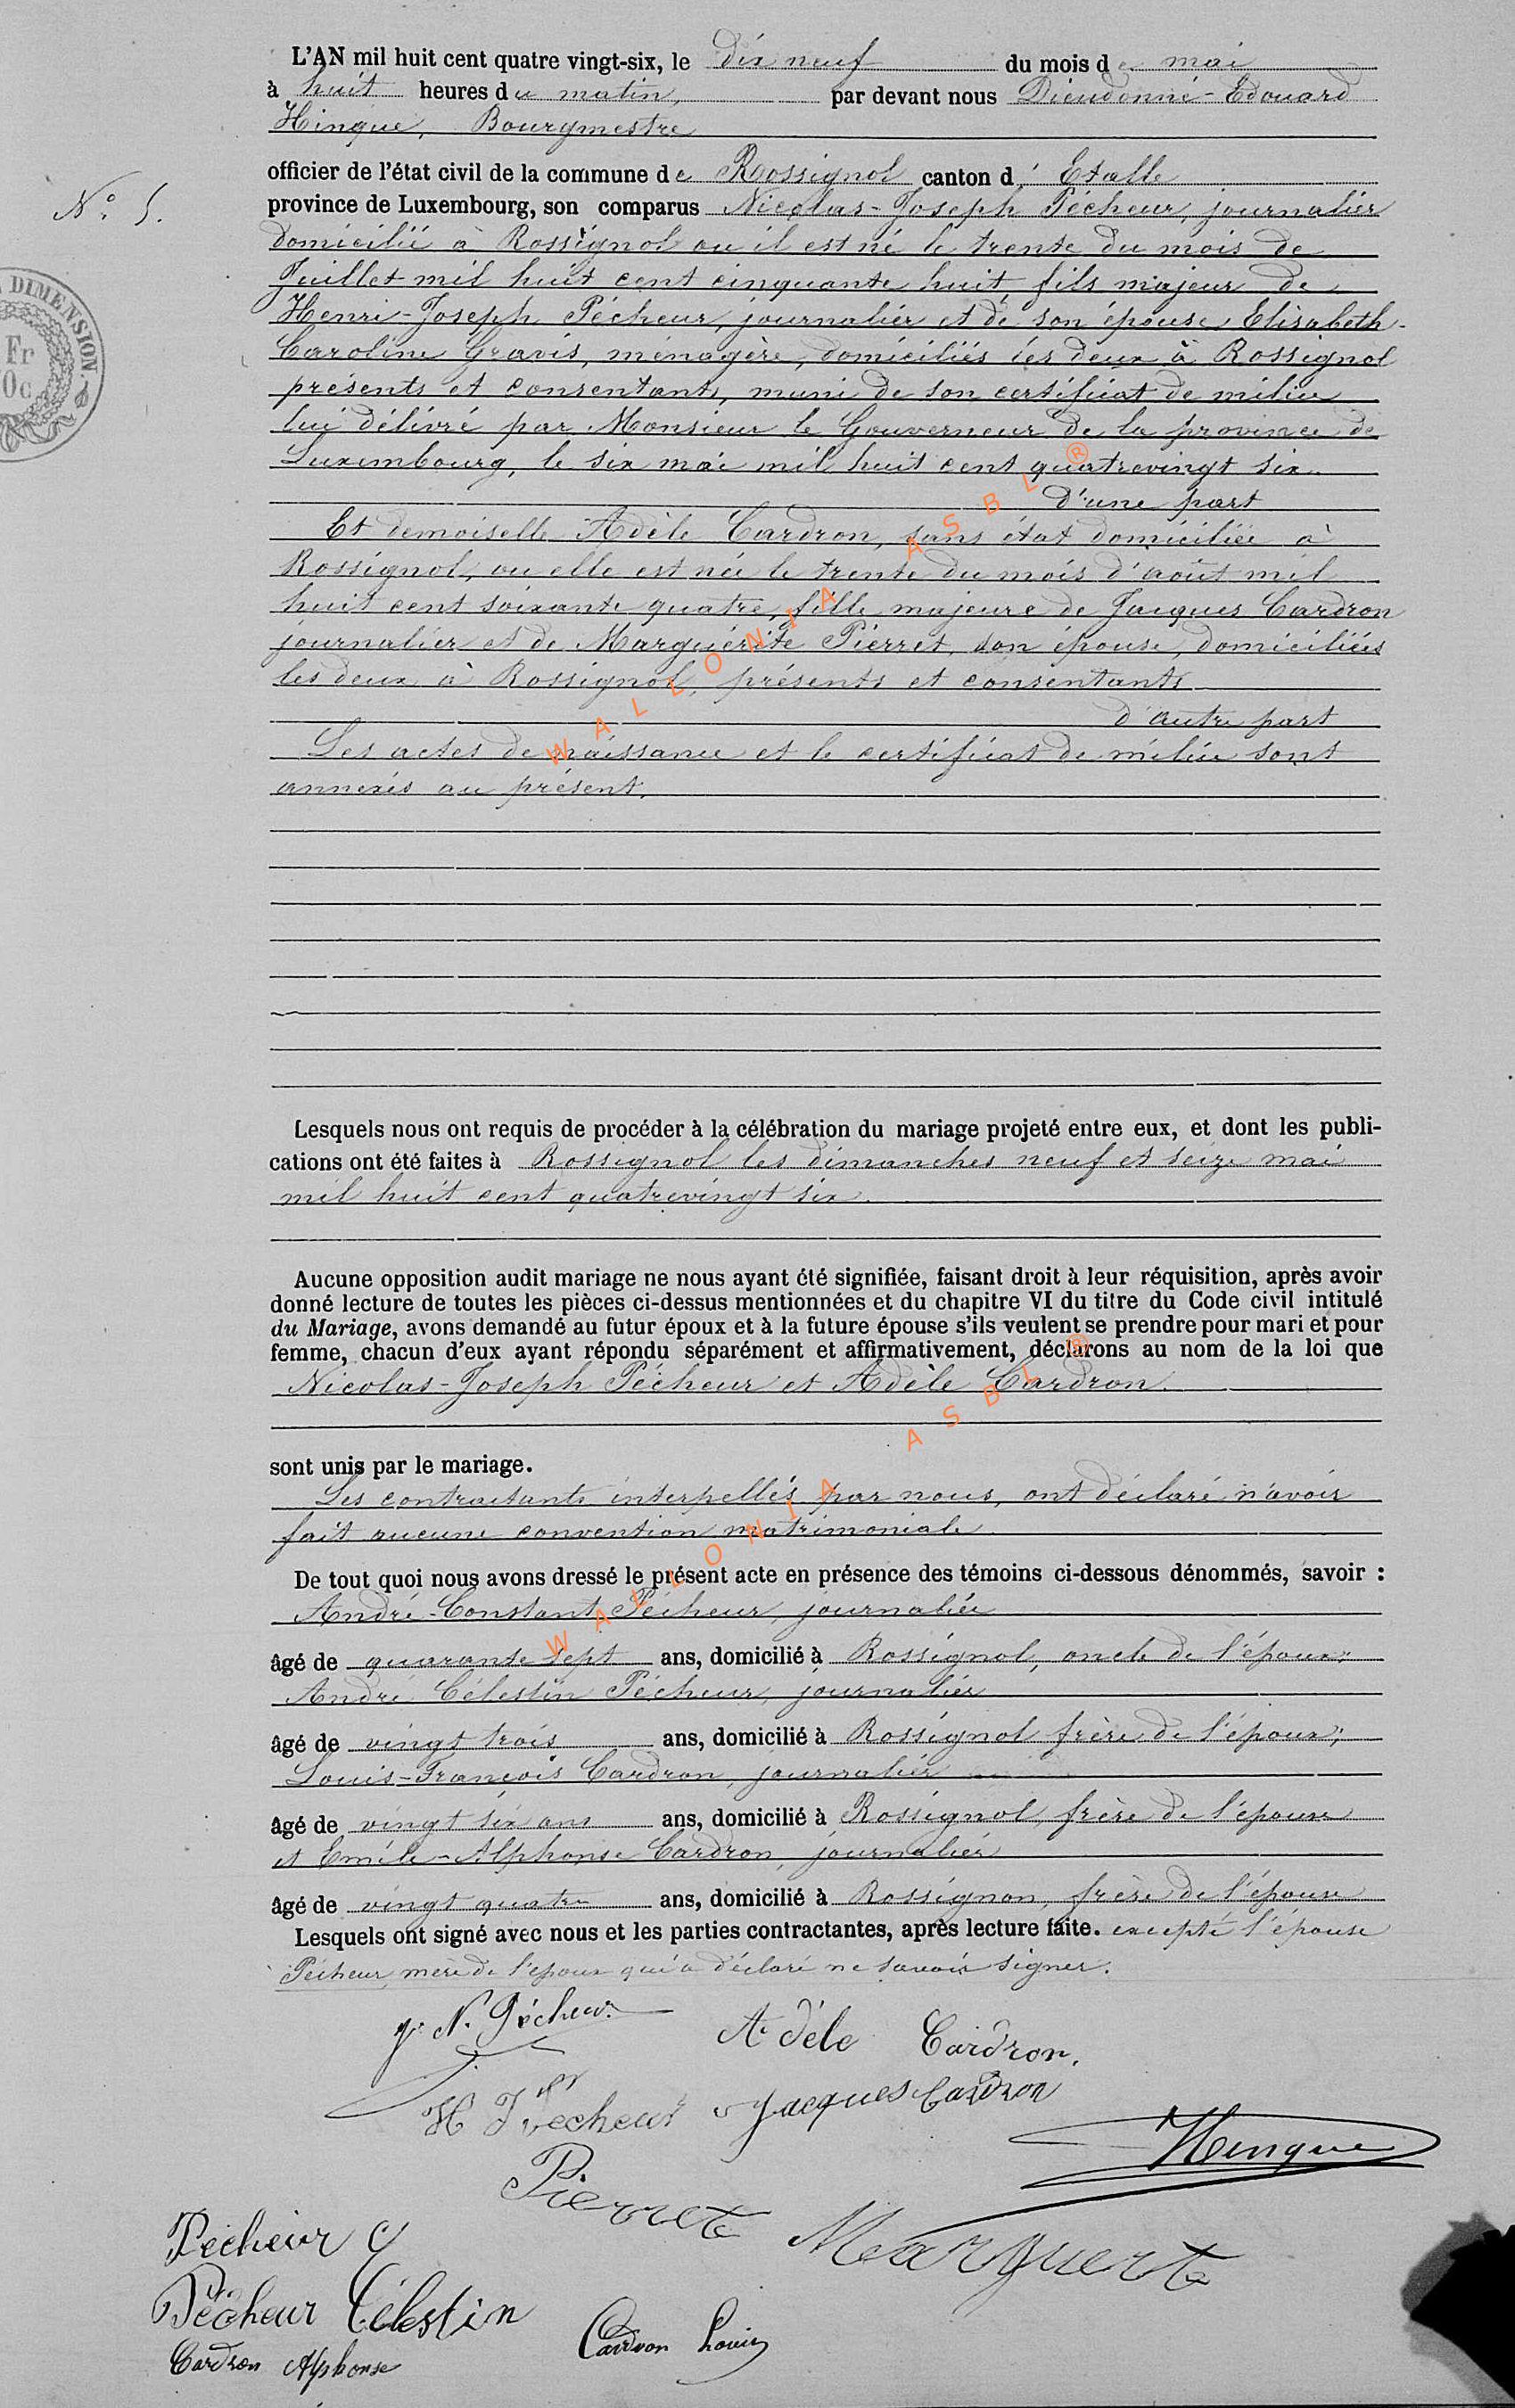 L'AN mil huit cent quatre vingt-six, le dix neuf du mois de mai
à huit heures du matin, par devant nous Dieudonné-Edouard
Hinque, Bourgmestre
officier de l'état civil de la commune de Rossignol canton d' Etalle
N° 5.
province de Luxembourg, son comparus Nicolas-Joseph Pécheur, journalier
domicilié à Rossignol ou il est né le trente du mois de
Juillet mil huit cent cinquante huit, fils majeur de
Henri-Joseph Pécheur, journalier et de son épouse Elisabeth-
Caroline Gravis, ménagère, domiciliés les deux à Rossignol
présents et consentants, muni de son certificat de milice
lui délivré par Monsieur le Gouverneur de la province de
Luxembourg, le six mai mil huit cent quatrevingt six.
d'une part
Et demoiselle Adèle Cardron, sans état domiciliée à
Rossignol, ou elle est née le trente du mois d'août mil
huit cent soixante quatre, fille majeure de Jacques Cardron
journalier et de Marguérite Pierret, son épouse, domiciliés
les deux à Rossignol, présents et consentants
d'autre part
Les actes de naissance et le certificat de milice sont
annexés au présent.
DIMENSION.
Fr
0c
WALLONIA ASBL ®
Lesquels nous ont requis de procéder à la célébration du mariage projeté entre eux, et dont les publi-
cations ont été faites à Rossignol les dimanches neuf et seize mai
mil huit cent quatrevingt six.
Aucune opposition audit mariage ne nous ayant été signifiée, faisant droit à leur réquisition, après avoir
donné lecture de toutes les pièces ci-dessus mentionnées et du chapitre VI du titre du Code civil intitulé
du Mariage, avons demandé au futur époux et à la future épouse s'ils veulent se prendre pour mari et pour
femme, chacun d'eux ayant répondu séparément et affirmativement, déclarons au nom de la loi que
Nicolas-Joseph Pécheur et Adèle Cardron.
sont unis par le mariage.
Les contractants interpellés par nous, ont déclaré n'avoir
fait aucune convention matrimoniale
De tout quoi nous avons dressé le présent acte en présence des témoins ci-dessous dénommés, savoir :
André-Constant Pécheur, journalier
âgé de quarante sept ans, domicilié à Rossignol, oncle de l'époux;
André Célestin Pécheur, journalier
âgé de vingt trois ans, domicilié à Rossignol frère de l'époux;
Louis-François Cardron, journalier
âgé de vingt six ans ans, domicilié à Rossignol, frère de l'épouse
et Emile-Alphonse Cardron, journalier
âgé de vingt quatre ans, domicilié à Rossignon, frère de l'épouse
Lesquels ont signé avec nous et les parties contractantes, après lecture faite. excepté l'épouse
Pécheur, mère de l'époux qui a déclaré ne savoir signer.
WALLONIA ASBL ®
J. N. Pécheur
Adèle Cardron.
H J Pecheur
Jacques Cardron
Hinque
Pierrete Marguerte
Pécheur C
Pécheur Célestin
Cardron Louis
Cardron Alphonse